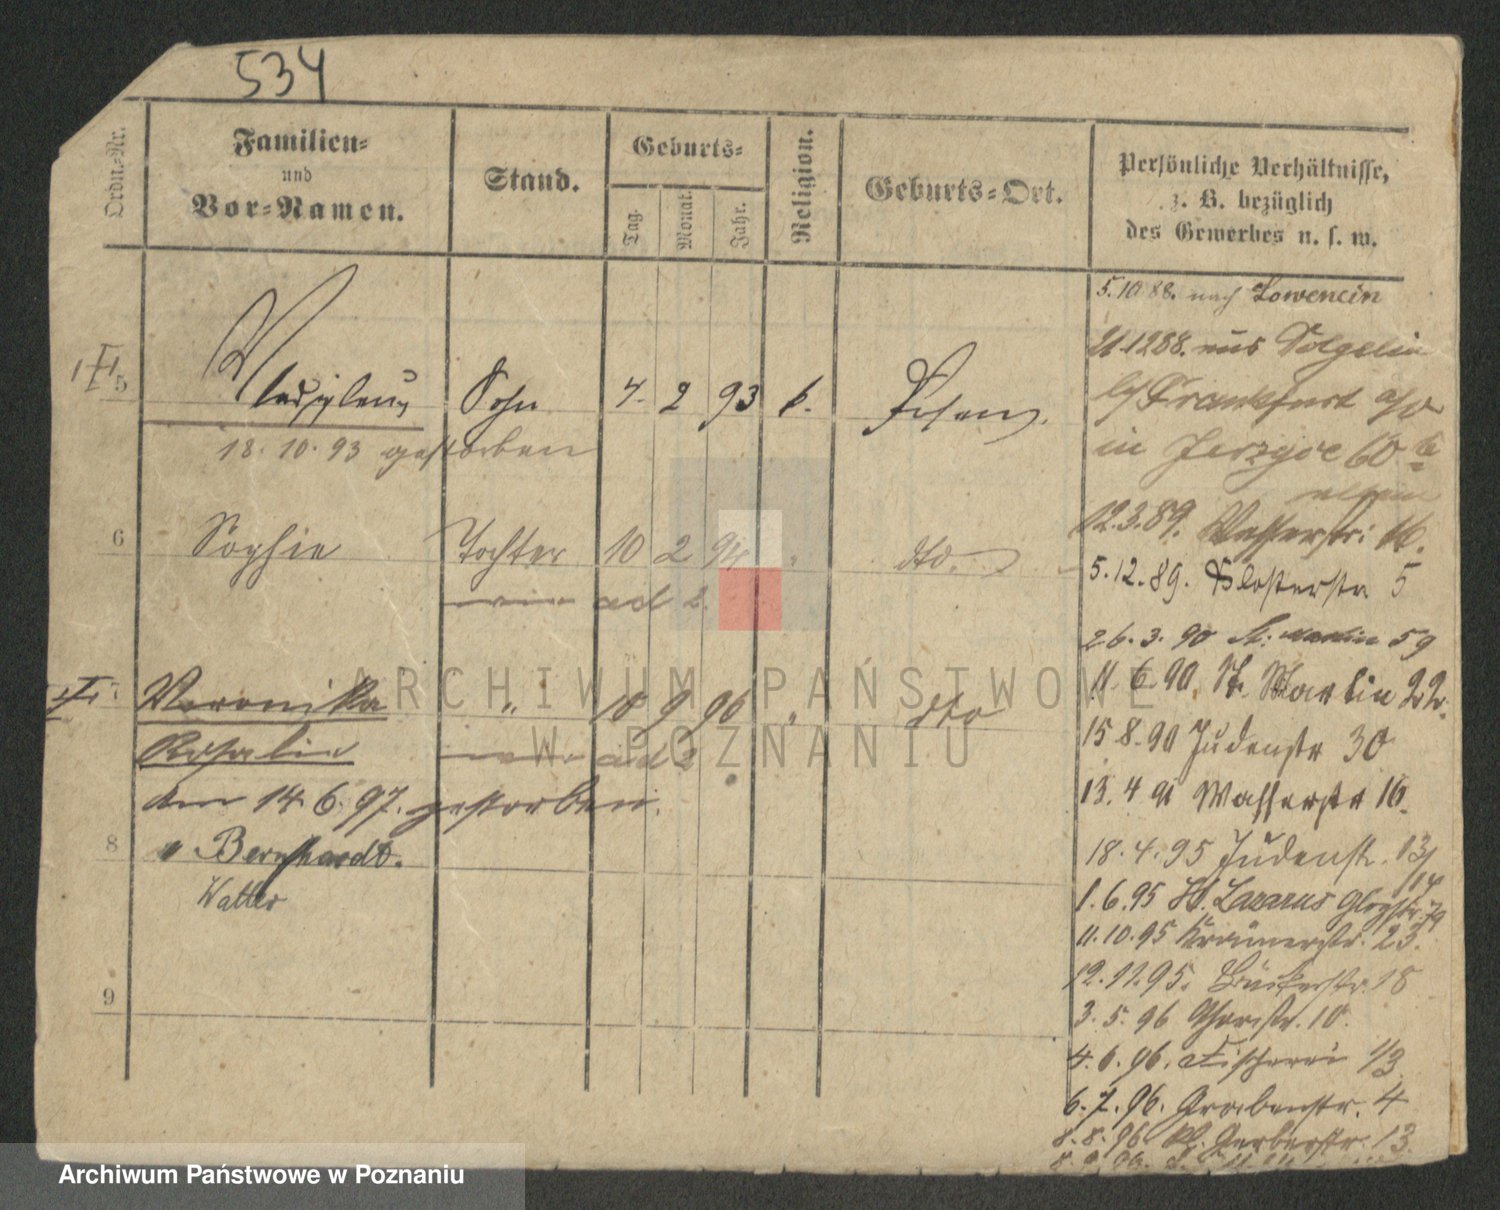 534
Ordn.-Nr.
Familien-
und
Vor-Namen.
Stand.
Geburts-
Tag.
Monat.
Jahr.
Religion.
Geburts-Ort.
Persönliche Verhältnisse,
z. B. bezüglich
des Gewerbes u. s. w.
5 Wladislaus Sohn 7. 2 93 k. Posen.
18. 10. 93 gestorben
6 Sophie Tochter 10 2 94 " dto.
ad 2.
7 Veronika " 18 9 96 " dto
Rosalie ad 2
am 14. 6. 97. gestorben.
8 " Bernhardt.
Walter
9
5.10.88. nach Lowencin
21.12 88. aus
b/ Frankfurt a/o
in Jerzyce 60
12.3.89. Wasserstr. 16.
5.12.89. Klosterstr. 5
26.3.90 St. Martin 59
11.6.90. St. Martin 22.
15.8.90 Judenstr 30
13.4 91 Wasserstr 16.
18.4.95 Judenstr. 13/14
1.6.95 St. Lazarus Glogstr. 79
11.10.95 Krämerstr. 23.
12.11.95. Bäckerstr. 18
3.5.96 Thorstr. 10.
4.6.96. Fischerei 1/3
6.7.96. Grabenstr. 4
8.8.96 Kl. Gerberstr. 13
ARCHIWUM PAŃSTWOWE
W POZNANIU
Archiwum Państwowe w Poznaniu